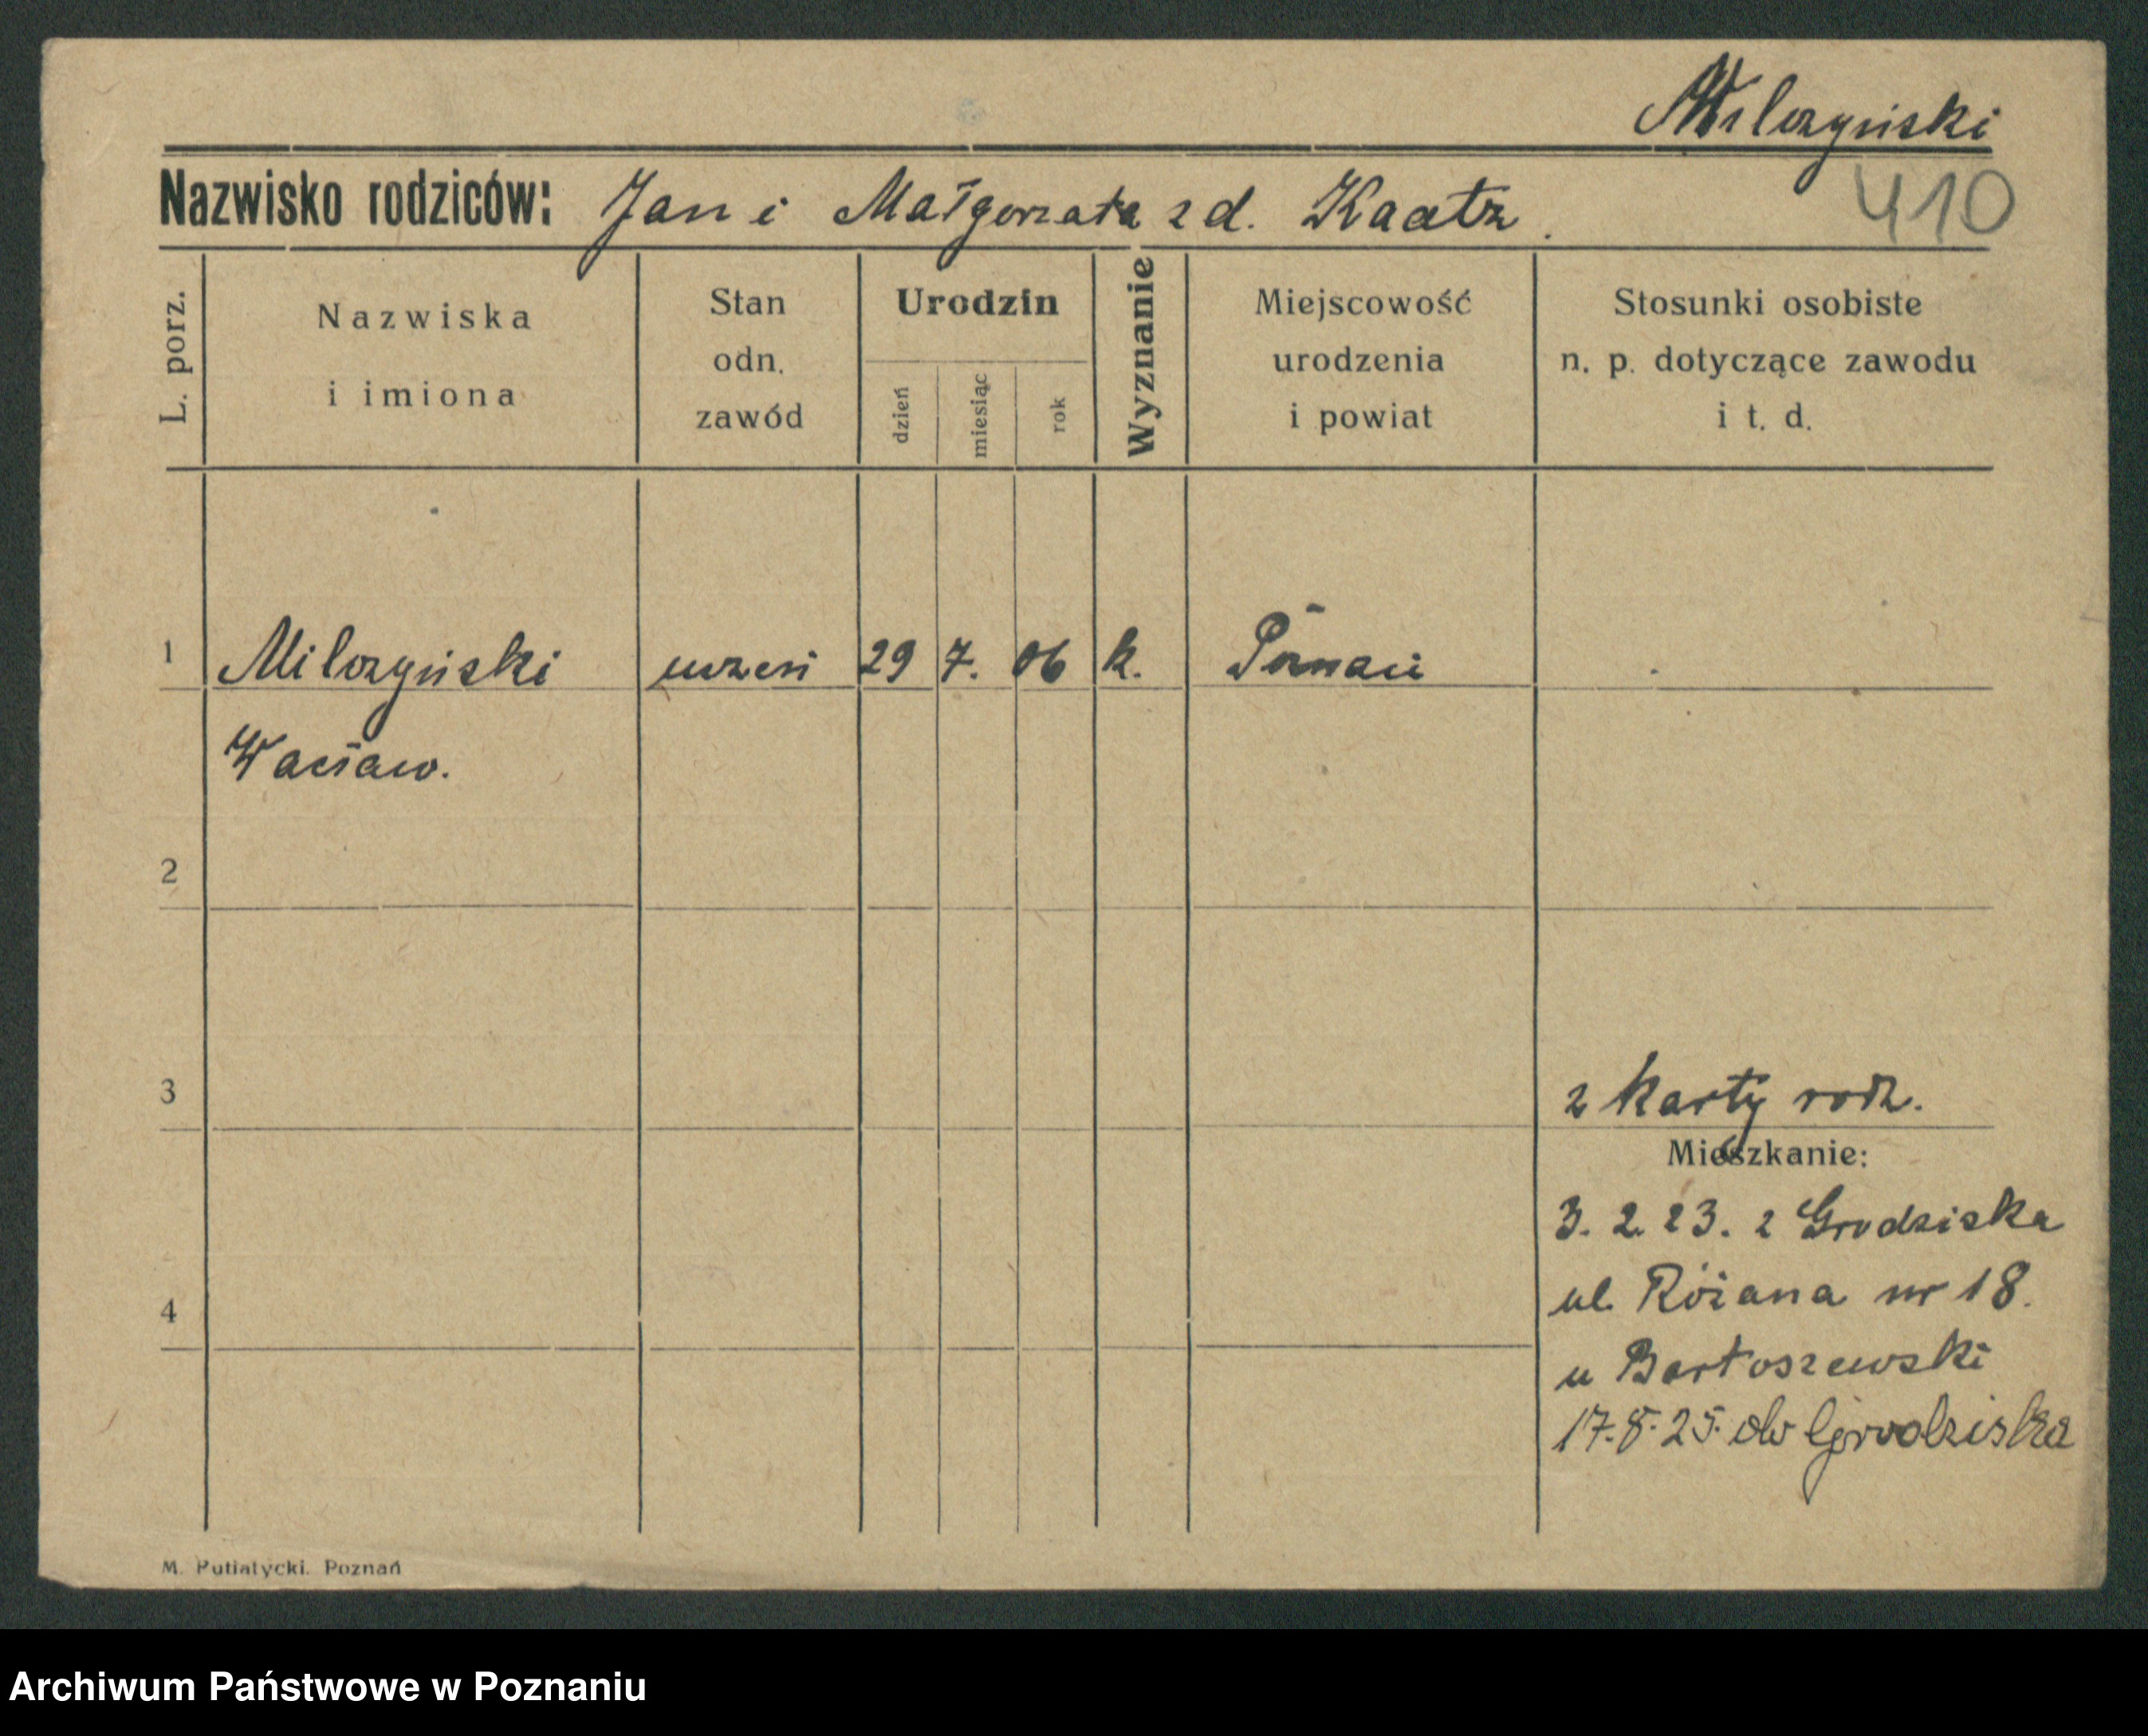 Milczyński
Nazwisko rodziców: Jan i Małgorzata z d. Kaatz.
410
L. porz.
Nazwiska
i imiona
Stan
odn.
zawód
Urodzin
dzień
miesiąc
rok
Wyznanie
Miejscowość
urodzenia
i powiat
Stosunki osobiste
n. p. dotyczące zawodu
i t. d.
1 Milczyński uczeń 29 7. 06 k. Poznań
Wacław.
2
3
z karty rodz.
Mieszkanie:
3. 2. 23. z Grodziska
4
ul. Różana nr 18.
u Bartoszewski
17. 8. 25. do Grodziska
M. Putiatycki. Poznań
Archiwum Państwowe w Poznaniu